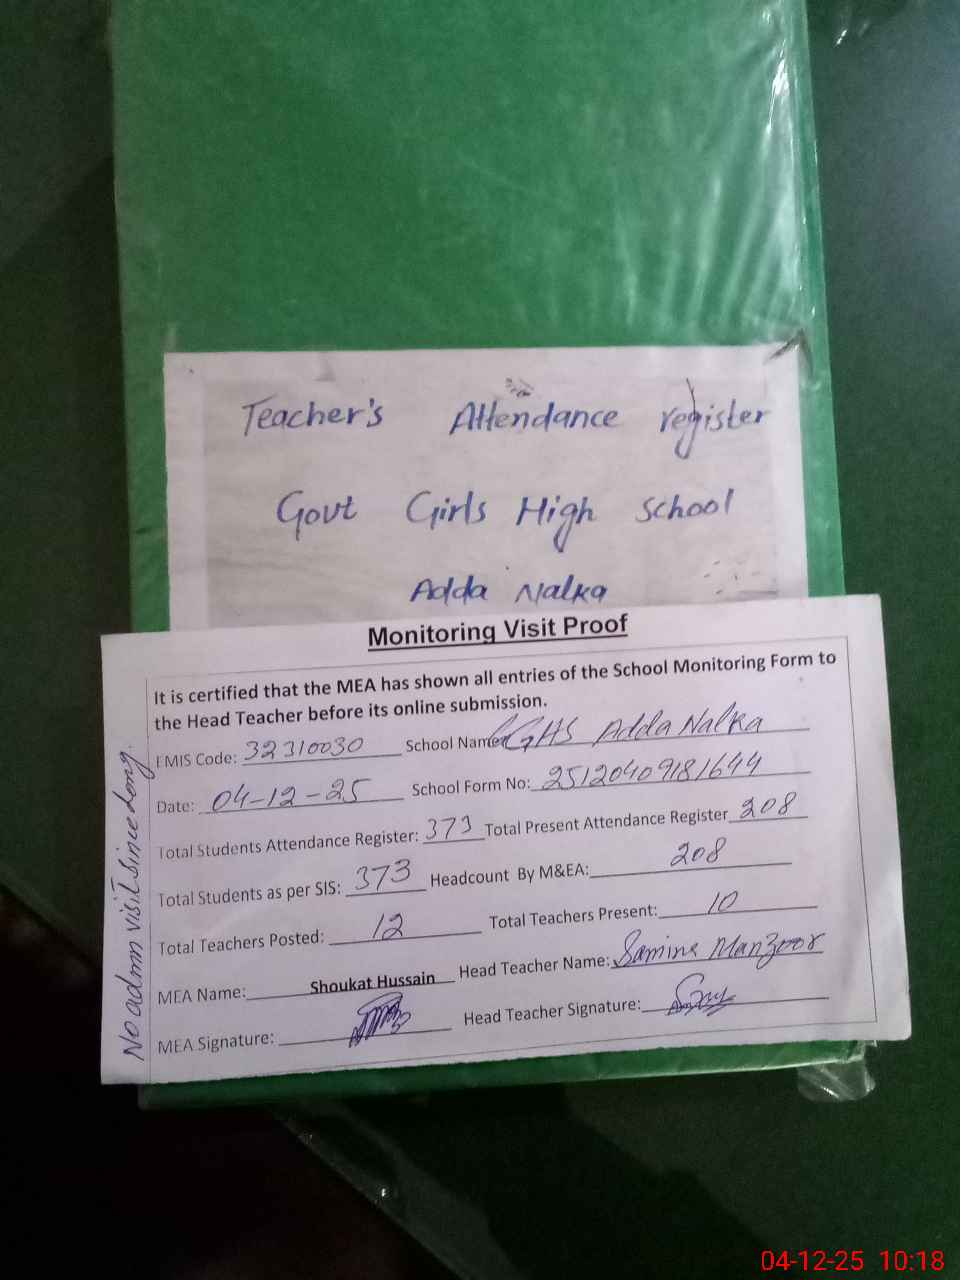 Teacher's Attendance register
Govt Girls High School
Adda Nalka
Monitoring Visit Proof
It is certified that the MEA has shown all entries of the School Monitoring Form to
the Head Teacher before its online submission.
EMIS Code: 32310030 School Name: GGHS Adda Nalka
Date: 04-12-25 School Form No: 25120409181644
Total Students Attendance Register: 373 Total Present Attendance Register 208
Total Students as per SIS: 373 Headcount By M&EA: 208
Total Teachers Posted: 12 Total Teachers Present: 10
MEA Name: Shoukat Hussain Head Teacher Name: Samina Manzoor
MEA Signature: Head Teacher Signature:
No admn visit since long.
04-12-25 10:18